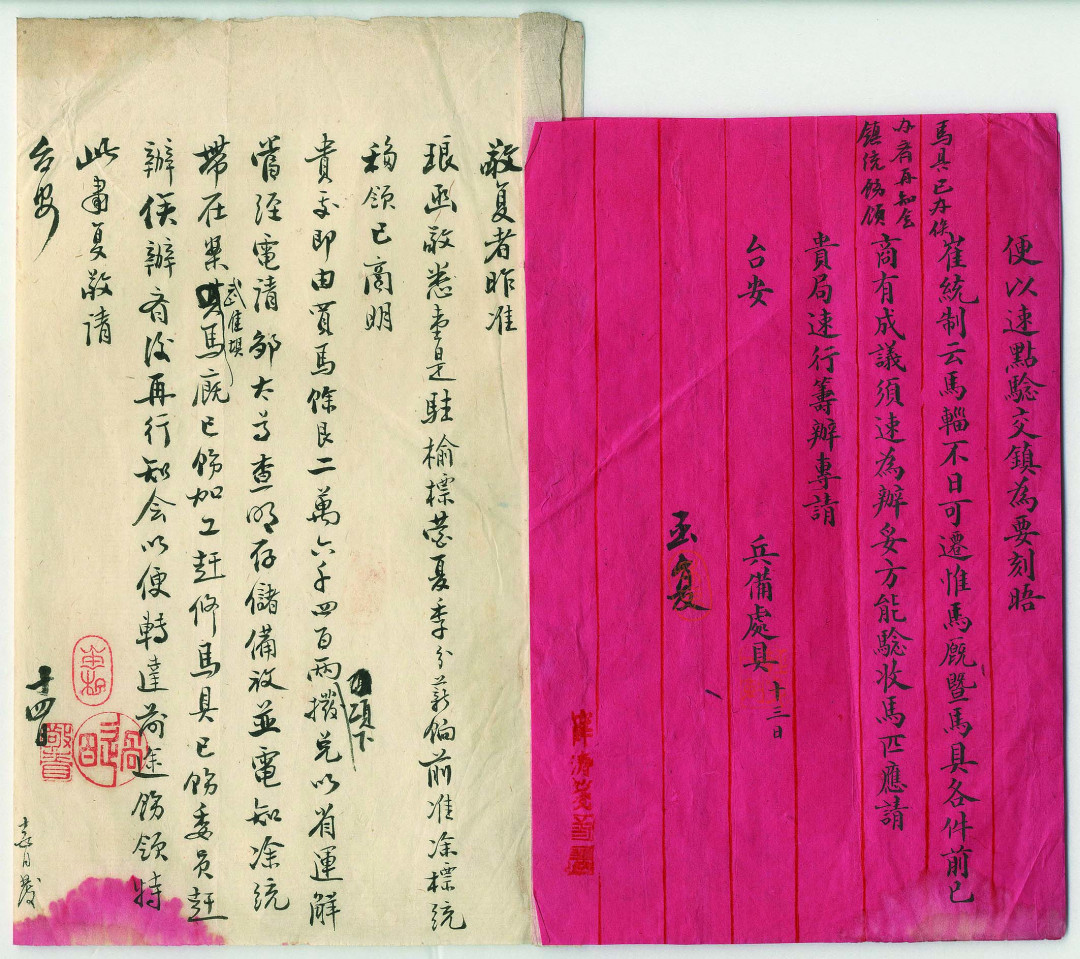 便以速點驗交鎮為要刻晤
崔統制云馬輜不日可遷惟馬廐暨馬具各件前已
商有成議須速為辦妥方能驗收馬匹應請
貴局速行籌辦專請
台安
兵備處具
十三日
馬具已办俟
办齊再知会
鎮統飭領
敬复者昨准
琅函敬悉壹是駐榆標营夏季分薪餉前准涂標統
稱領已商明
貴 即由買馬餘良二萬六千四百兩撥兑以省運解
項下
當經電請鄒太守查明存儲備放並電知涂統
帶在案 馬廐已飭加工赶修馬具已飭委員赶
武准壩
辦俟辦齊後再行知会以便轉達前途飭領特
此肅复敬請
台安
十四日